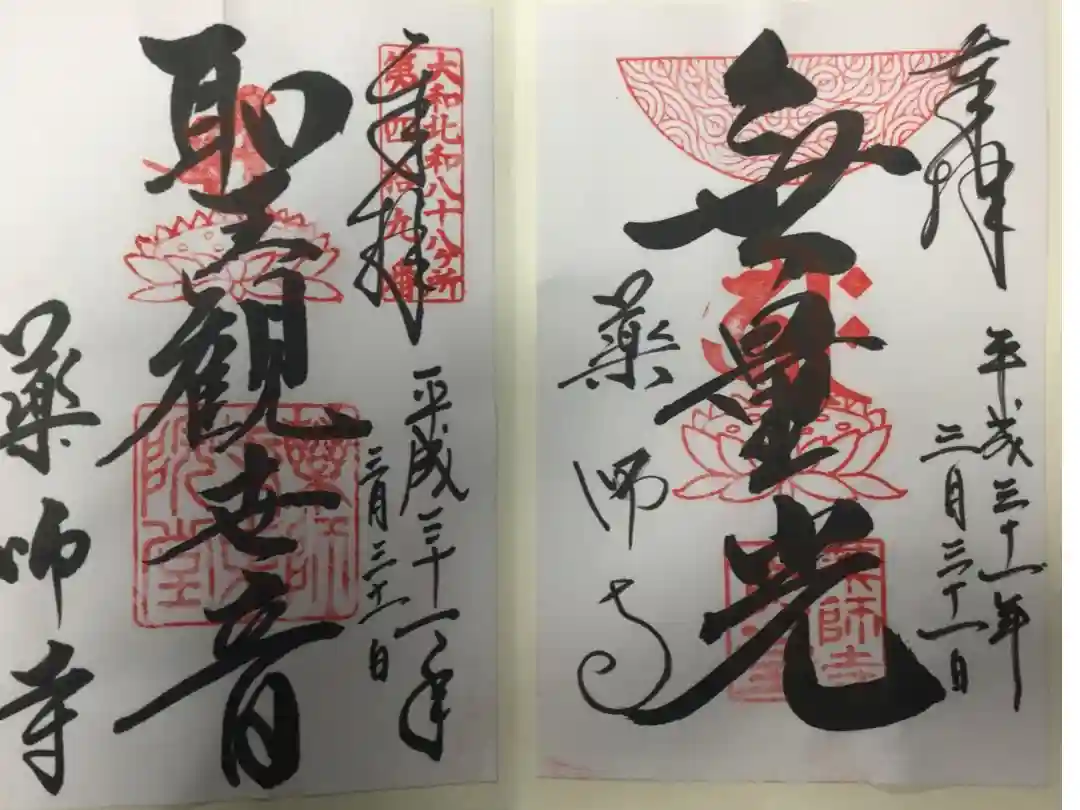 奉拝
平成三十一年
三月三十一日
無量光
薬師寺
薬師寺
大和北和八十八ヶ所
第四拾九番
奉拝
平成三十一年
三月三十一日
聖觀世音
薬師寺東院堂
薬師寺